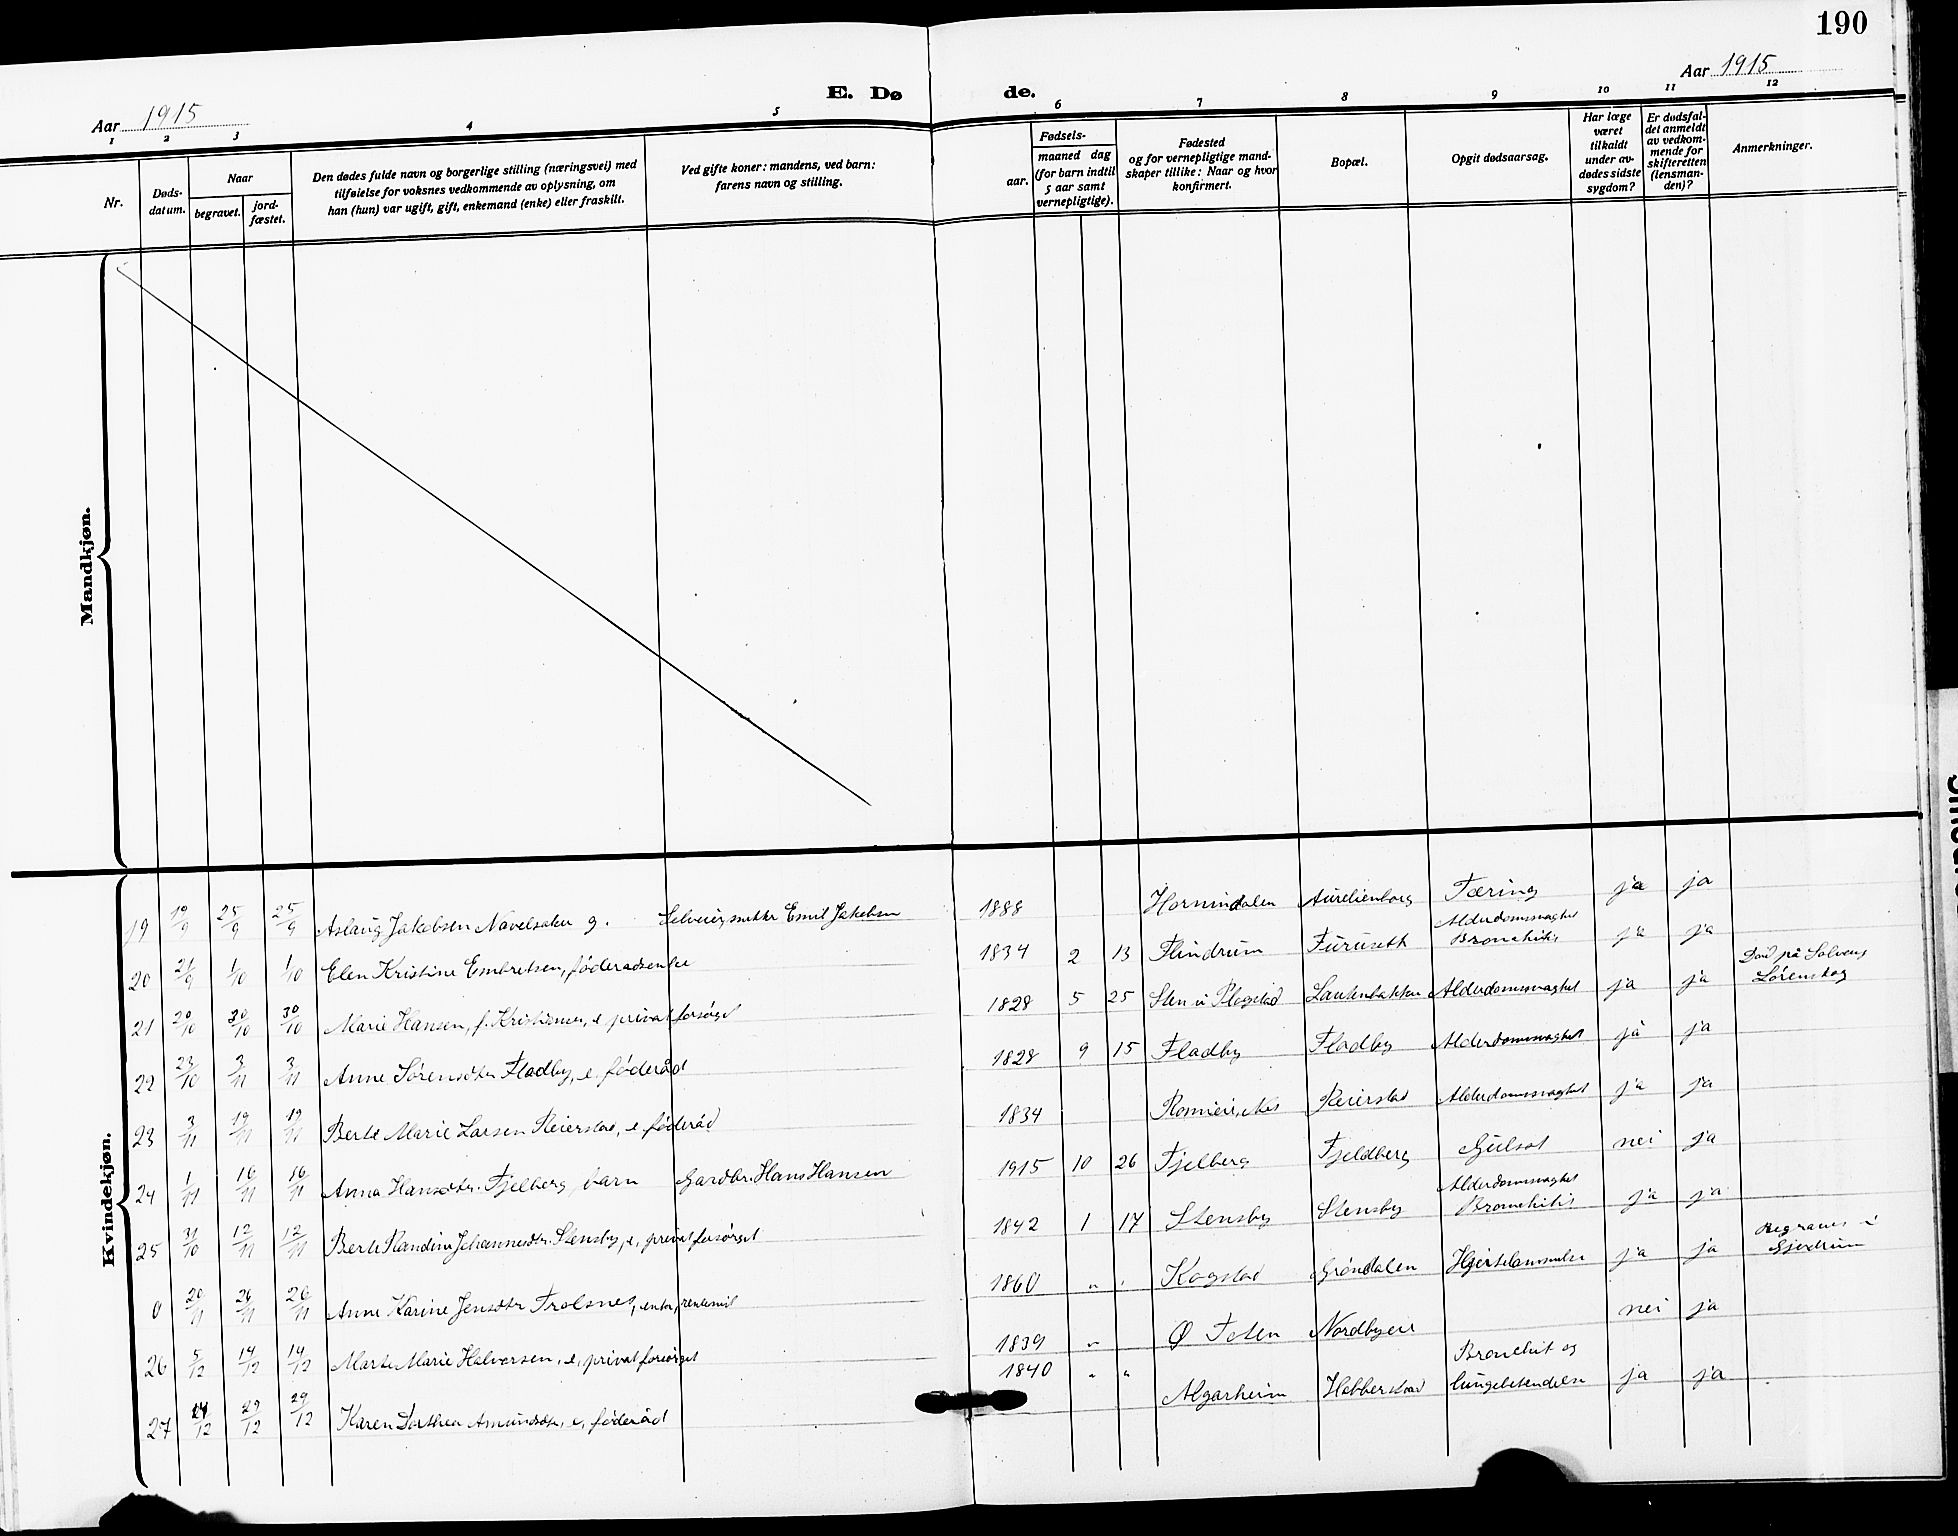 190
Aar 1915
E. Dø de.
Aar 1915
1 2 3 4 5 6 7 8 9 10 11 12
Nr.
Døds-
datum.
Naar
begravet.
jord-
fæstet.
Den dødes fulde navn og borgerlige stilling (næringsvei) med
tilføielse for voksnes vedkommende av oplysning, om
han (hun) var ugift, gift, enkemand (enke) eller fraskilt.
Ved gifte koner: mandens, ved barn:
farens navn og stilling.
Fødsels-
aar.
maaned dag
(for barn indtil
5 aar samt
vernepligtige).
Fødested
og for vernepligtige mand-
skaper tillike: Naar og hvor
konfirmert.
Bopæl.
Opgit dødsaarsag.
Har læge
været
tilkaldt
under av-
dødes sidste
sygdom?
Er dødsfal-
det anmeldt
av vedkom-
mende for
skifteretten
(lensman-
den)?
Anmerkninger.
Mandkjøn.
Kvindekjøn.
19 19/9 25/9 25/9 Aslaug Jakobsen Navelsaker g. Selveier, snekker Emil Jakobsen 1888 Hornindalen Aurelienborg Tæring ja ja
20 21/9 1/10 1/10 Elen Kristine Embretsen, føderadsenke 1834 2 13 Flindrum Furuseth Alderdomssvaghet Bronchitis ja ja
21 20/10 30/10 30/10 Marie Hansen, f. Kristiansen, e. privat forsørget 1828 5 25 Sten i Plogstad Lautenbakken Alderdomssvaghet ja ja Død på Solveng Lørenskog
22 23/10 3/11 3/11 Anne Sørensdtr. Fladby, e. føderåd 1828 9 15 Fladby Fladby Alderdomssvaghet ja ja
23 3/11 19/11 19/11 Berte Marie Larsen Reierstad, e. føderåd 1834 Nes Reierstad Alderdomssvaghet ja ja
24 1/11 16/11 16/11 Anna Hansdtr. Fjelberg, barn Gardbr. Hans Hansen 1915 10 26 Fjelberg Fjeldberg Gulsot nei ja
25 31/10 12/11 12/11 Berte Randine Johannesdtr. Stensby, e. privat forsørget 1842 1 17 Stensby Stensby Alderdomssvaghet Bronchitis ja ja
0 20/11 26/11 26/11 Anne Karine Jensdtr. Trolsnes, enke, 1860 " " Kogstad Grøndalen Hjertelammelse ja ja Begraves i Gjerdrum
26 5/12 14/12 14/12 Marte Marie Halvorsen, e. privat forsørget 1839 " Ø Toten Nordbyeie nei ja
27 /12 29/12 29/12 Karen Dorthea Amundsdtr. e. føderåd 1840 " " Algarheim Hobberstad Bronchit og lungebetendelse ja ja